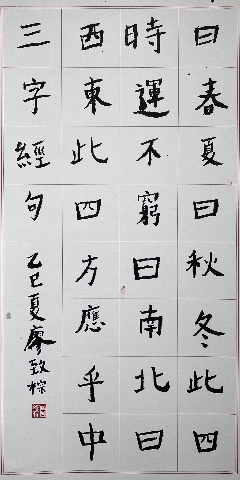 曰春夏曰秋冬此四
時運不窮曰南北曰
西東此四方應乎中
三字經句 乙巳夏廖致棕